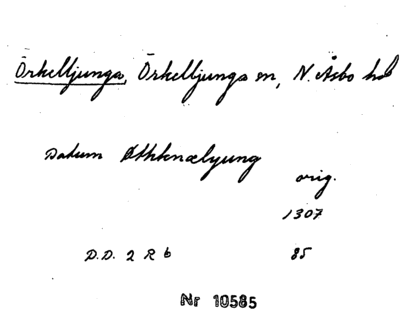 Örkelljunga, Örkelljungs sn, N. Åsbo hd
Datum Øthknælyung
orig.
1307
D.D. 2 R b 85
Nr 10585